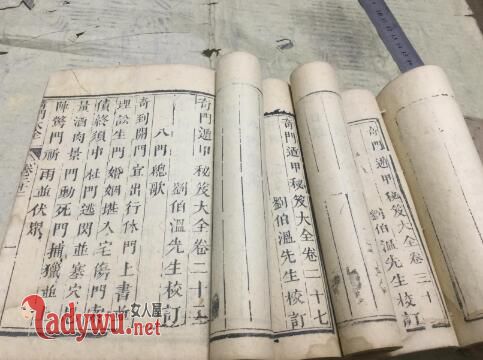 奇門遁甲秘笈大全卷三十
劉伯溫先生校訂
奇門遁甲秘笈大全卷二十七
劉伯溫先生校訂
奇門遁甲秘笈大全卷二十
劉伯溫先生校訂
八門總歌
奇到開門宜出行休門上書
理訟生門婚姻堪入宅傷門
債終須中杜門逃閃並墓穴
量酒肉景門動死門捕獵並
陣驚門祈雨並伏
奇門大全 卷
女人屋
Ladywu.net